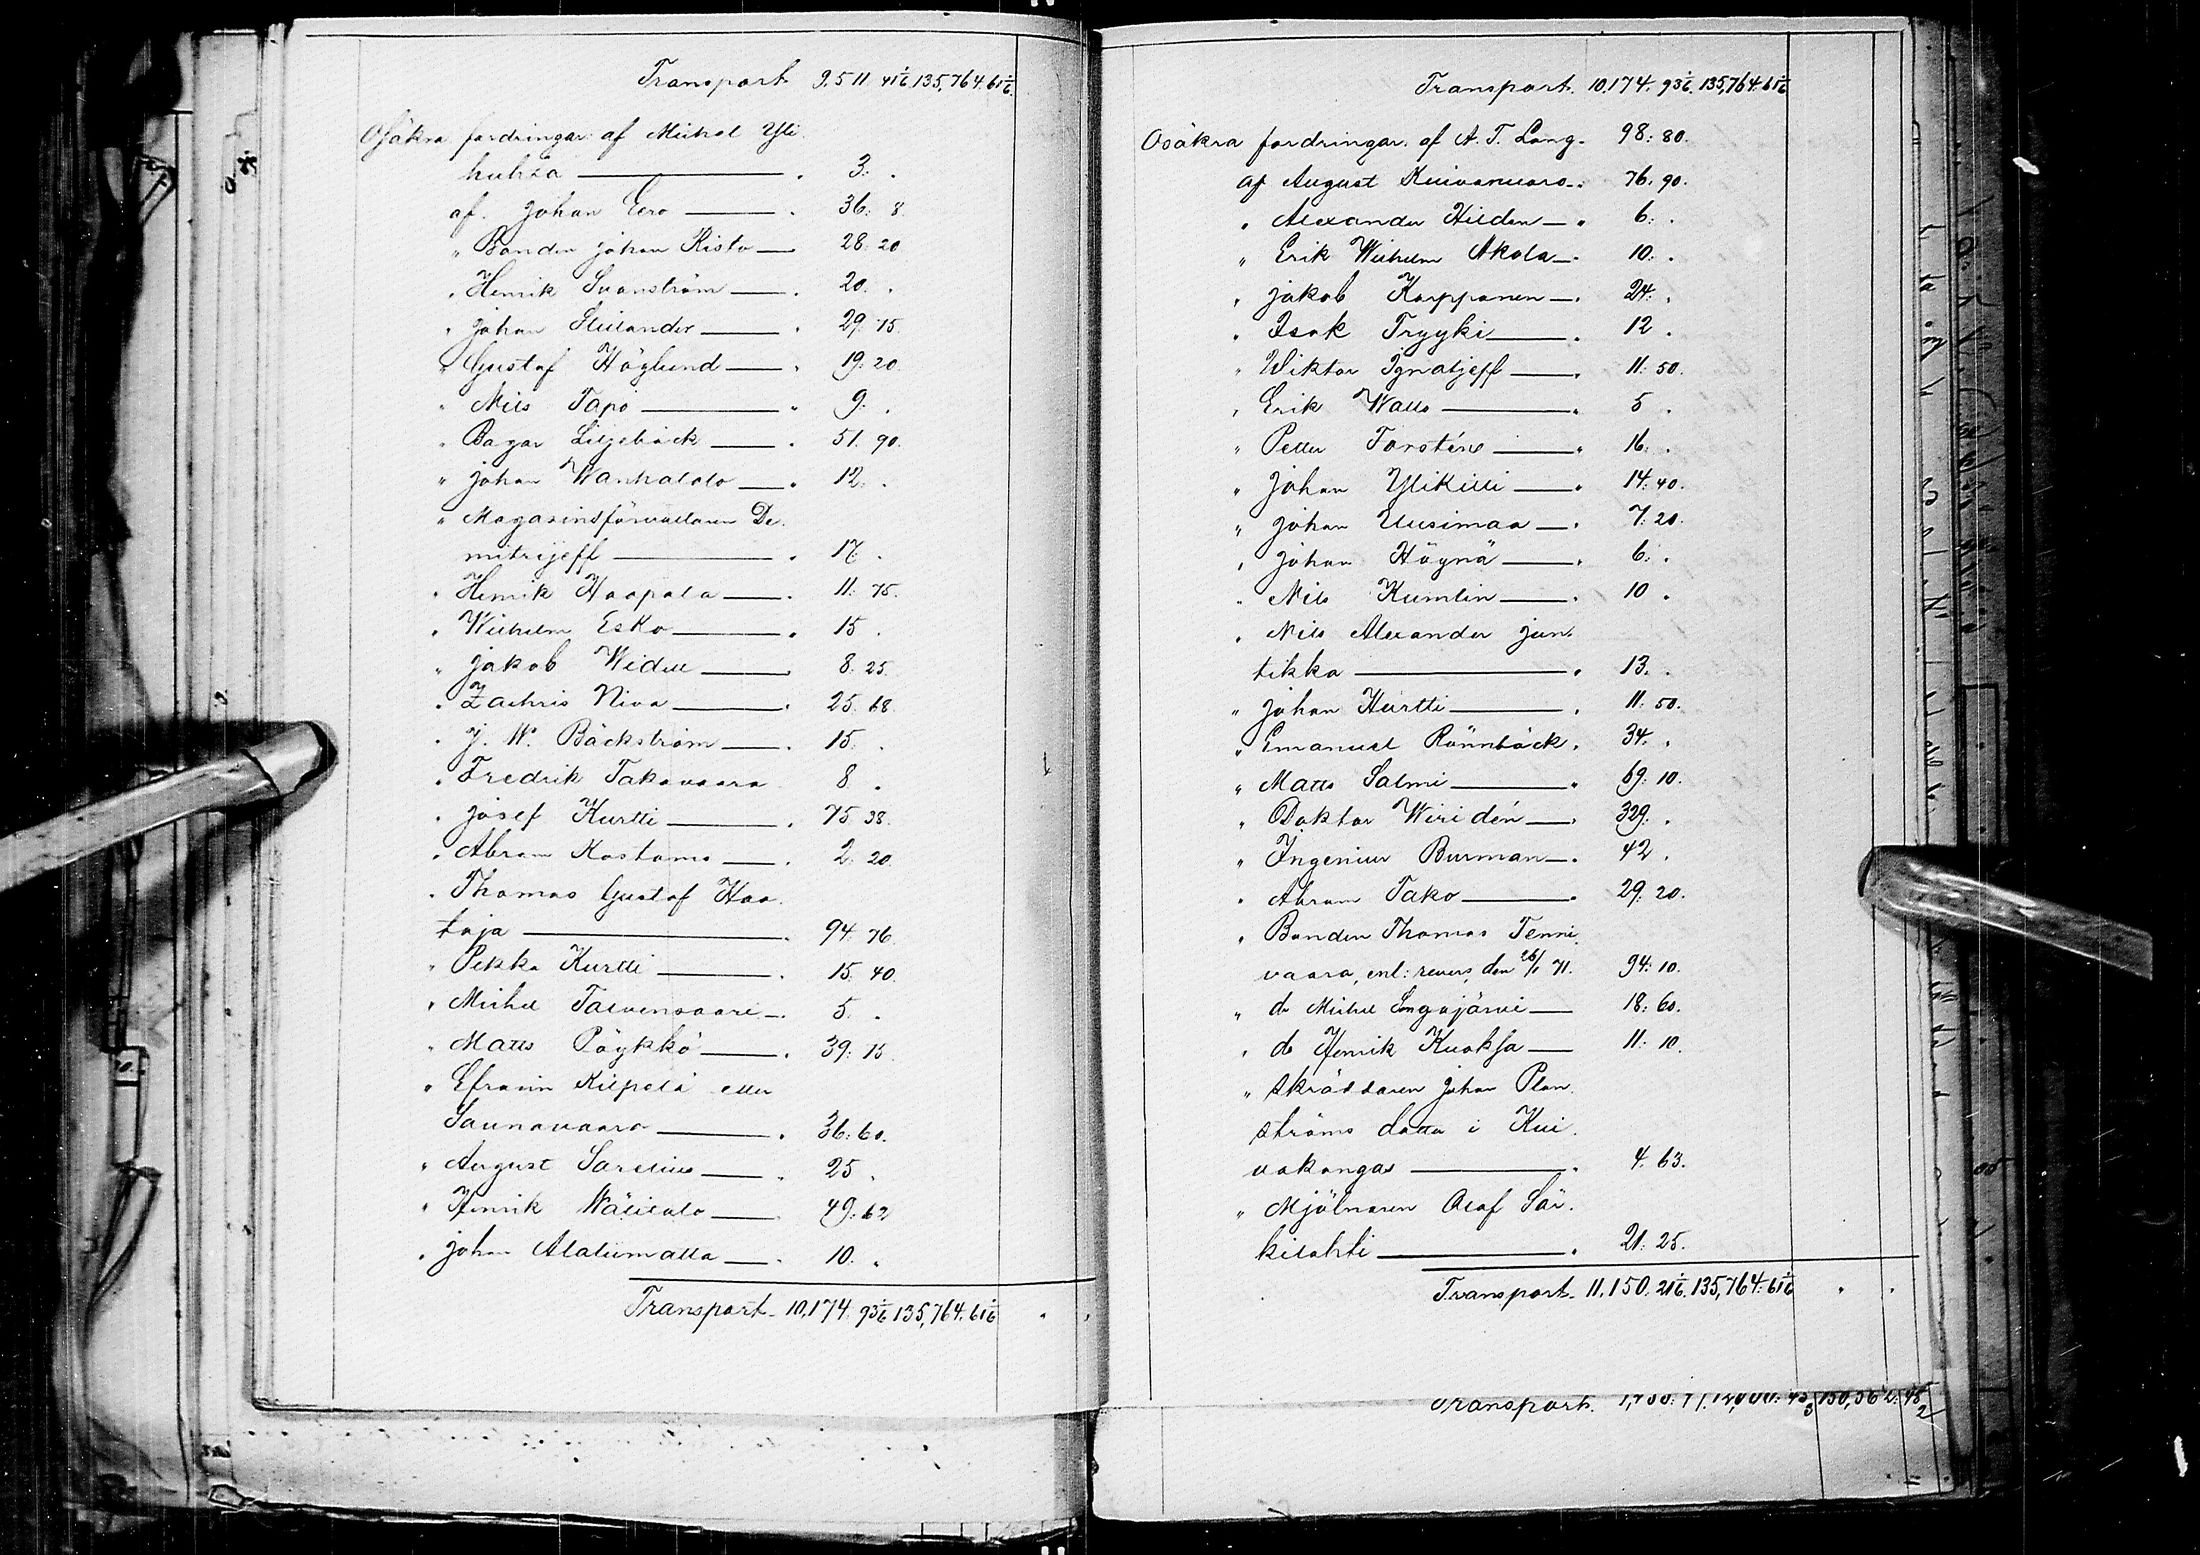 Transport 9,511. 41 1/6. 135,764. 61 1/6.
Osäkra fordringar af Michel Yli
huhta — . 3. .
af. Johan Eero — . 36: 8.
" Bonden Johan Risto — 28: 20
" Henrik Svanström — . 20. .
" Johan — . 29. 75.
" Gustaf Höglund — . 19. 20.
" Nils Tapio — " 9. .
" Bagar Liljebäck — . 51. 90.
" Johan Wanhatalo — . 12. .
" Magasinsförvaltaren De-
mitrijeff — . 17. .
" Henrik Haapala — . 11. 75.
" Wilhelm Esko — . 15 .
" Jakob Widell — 8. 25.
" Zachris Niva — . 25. 68.
" J. W. Bäckström — . 15. .
" Fredrik Takavaara 8 .
" Josef Kurtti — . 75 38.
" Abram Kostamo — . 2. 20.
" Thomas Gustaf Haa-
taja — . 94. 76.
" Pekka Kurtti — . 15. 40.
" Michel Talvensaari — . 5. .
" Matts Pöykkö — . 39: 75.
" Efraim Kilpelä eller
Saunavaara — . 36: 60.
" August Sarelius — . 25 .
" Henrik Wälitalo — 49: 62
" Johan Alalumatta — . 10. .
Transport. 10,174. 93 1/6 135,764. 61 1/6 . .
Transport. 10,174. 93 1/6. 135,764. 61 1/6
Osäkra fordringar. af A. T. Lang. 98: 80.
af August Kuivanuoro — . 76. 90.
" Alexander Hilden — . 6: .
" Erik Wilhelm Akola — . 10: .
" Jakob Karppanen — . 24: .
" Isak Tryyki — . 12 .
" Wiktor Ignatjeff — . 11: 50.
" Erik Walls — " 5 .
" Petter Torstén — " 16. .
" Johan Ylikitti — " 14: 40.
" Johan Uusimaa — . 7: 20.
" Johan Höynä — . 6: .
" Nils Kumlin — . 10 .
" Nils Alexander Jun-
tikka — " 13. .
" Johan Hurtti — . 11: 50.
" Emanuel Rönnbäck . 34. .
" Matts Salmi — " 69: 10.
" Doktor Wiridén — . 329. .
" Ingeniur Burman — . 42 .
" Abram Tako — . 29. 20.
" Bonden Thomas Tenni-
vaara, enl: revers, den 26/1 71. 94: 10.
" do Michel Songajärvi — 18: 60.
" do Henrik Kuoksa — 11: 10.
" skräddaren Johan Plan-
ströms dotter i Kui-
vakangas — . 4. 63.
" Mjölnaren Olof Sär-
kilahti — . 21: 25.
Transport. 11,150. 21 1/6. 135,764: 61 1/6 . .
Transport.